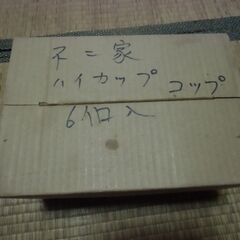 不二家
ハイカップ コップ
6個入